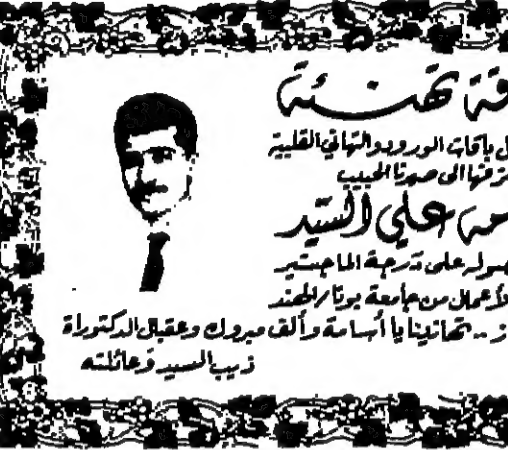 تهنئة
باقات الورود والتهاني القلبية
نزفها الى صهرنا الحبيب
علي السيد
على درجة الماجستير
الأعمال من جامعة بونا / الهند
تهانينا يا أسامة وألف مبروك وعقبال الدكتوراة
ذيب السيد وعائلته